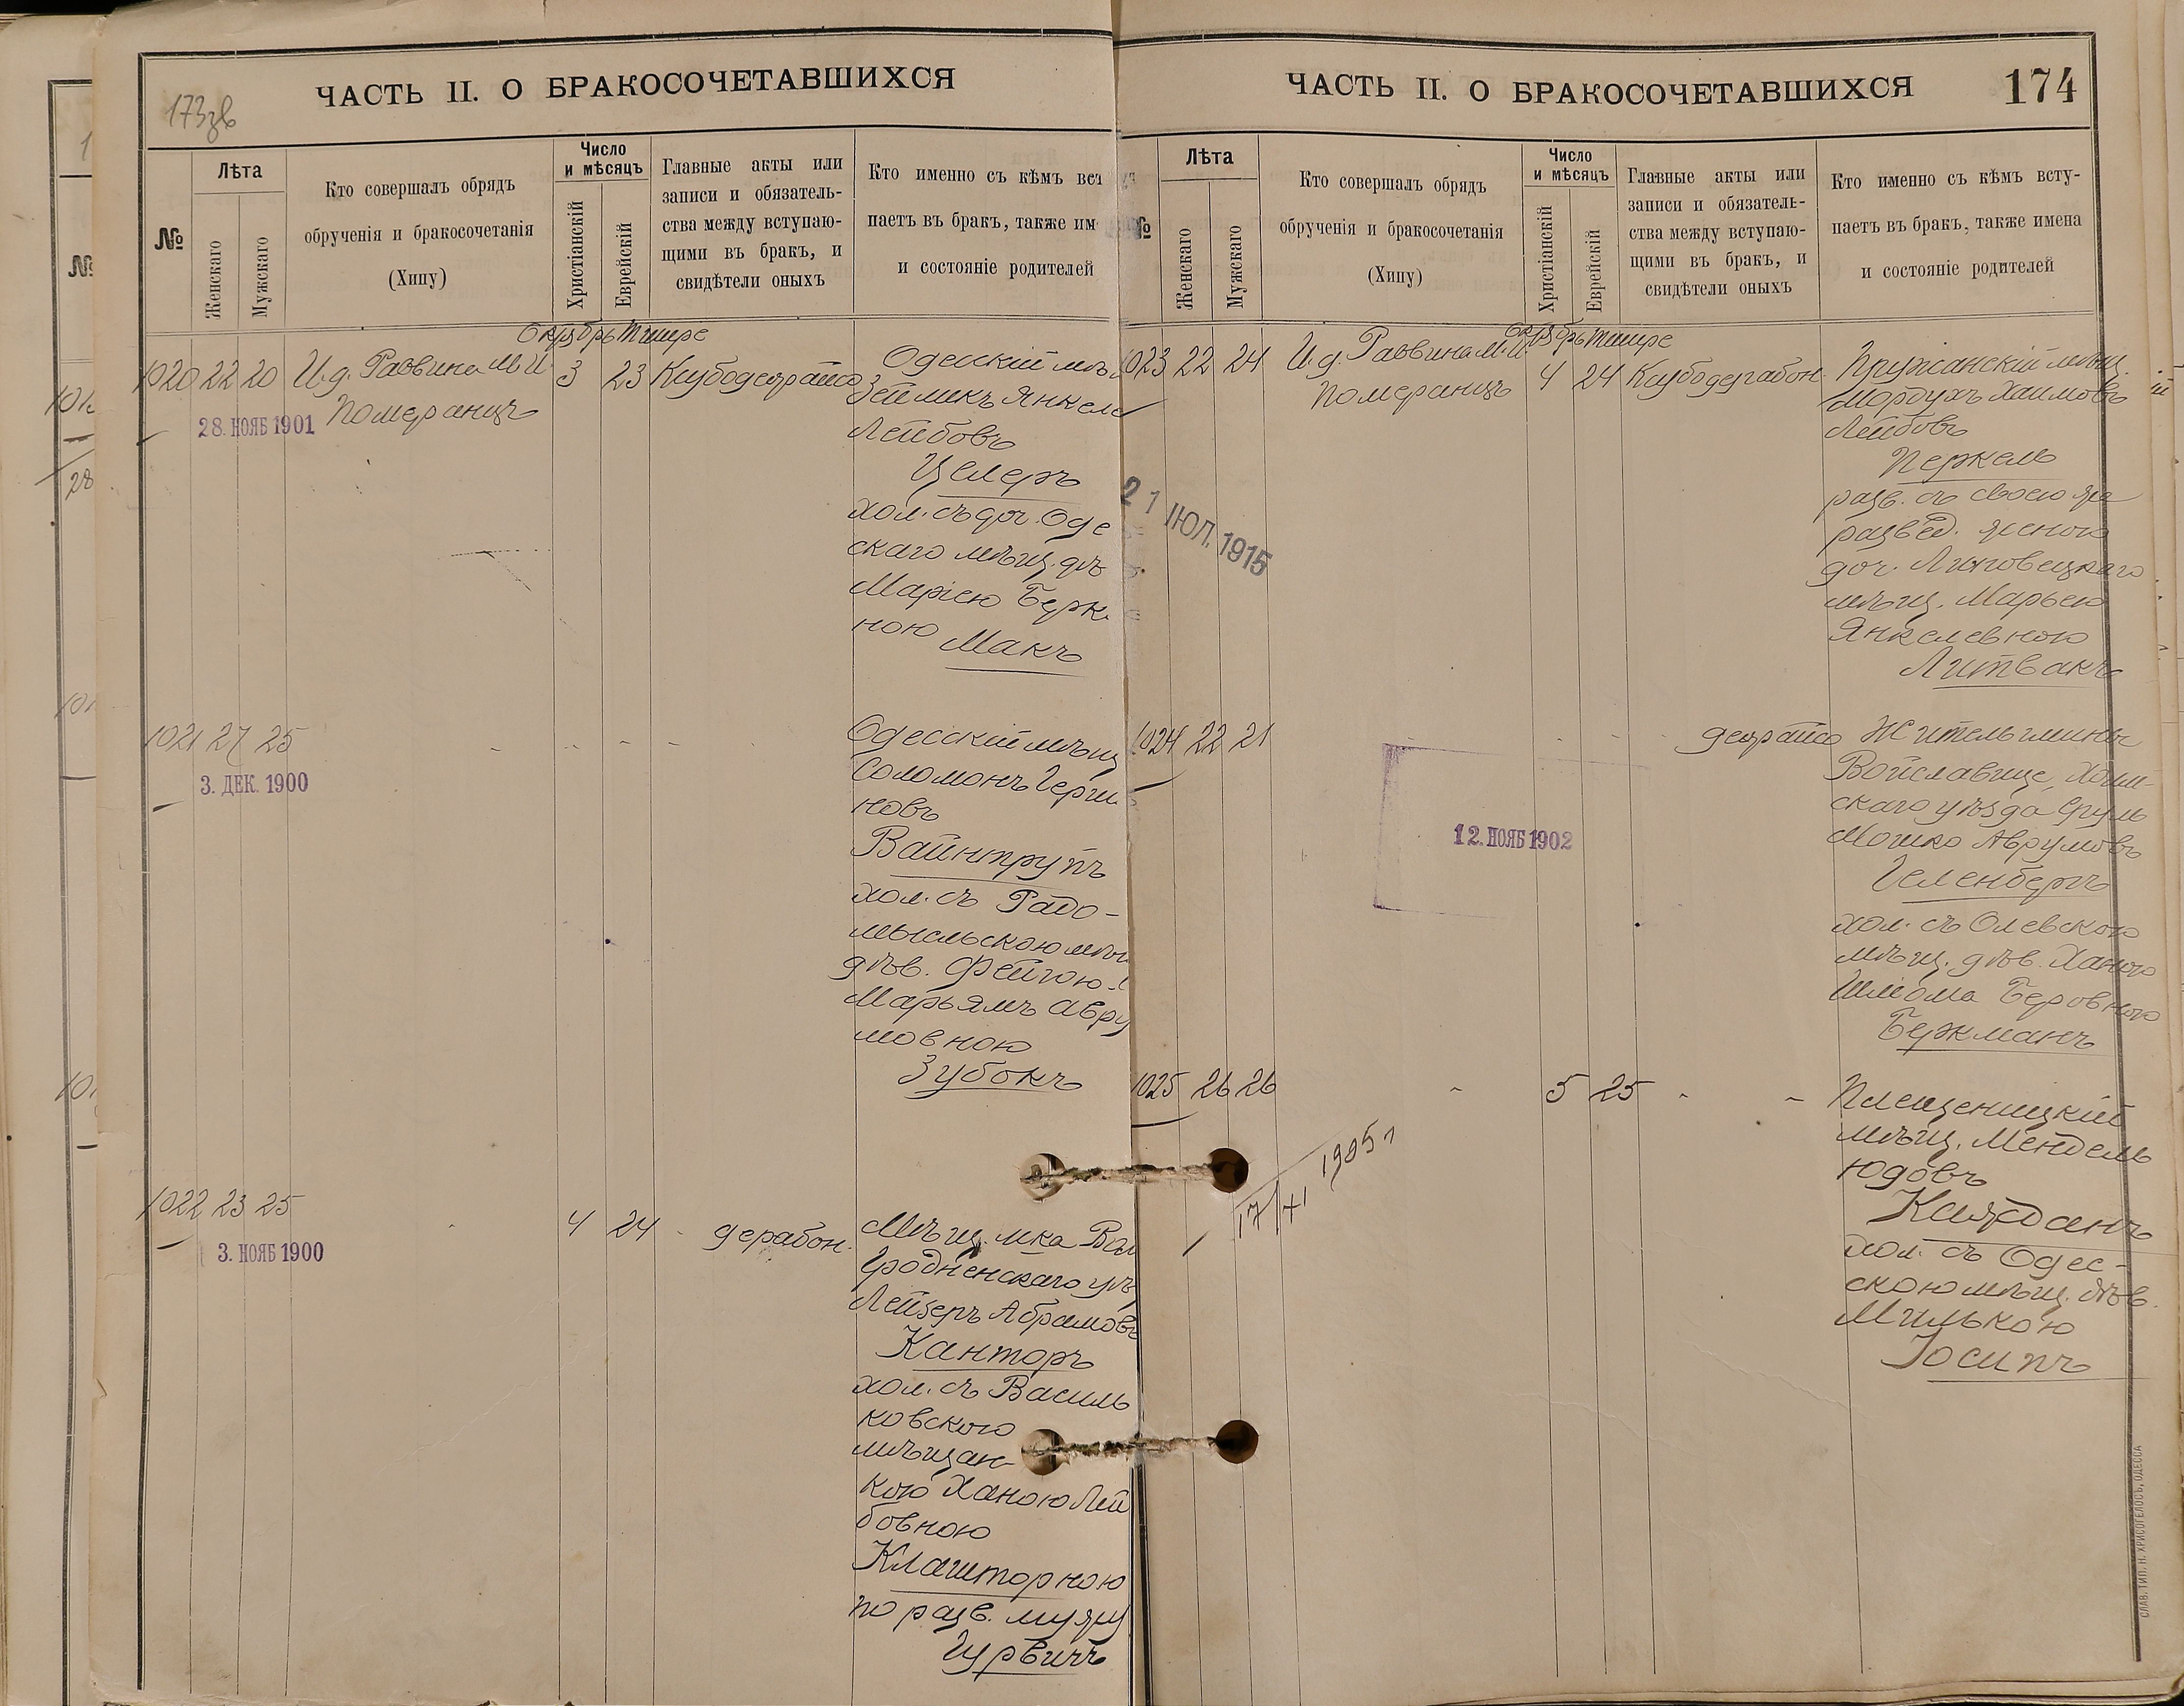 ЧАСТЬ II. О БРАКОСОЧЕТАВШИХСЯ
173зв
№
Лѣта
Женскаго
Мужскаго
Кто совершалъ обрядъ
обрученія и бракосочетанія
(Хипу)
Число
и мѣсяцъ
Христіанскій
Еврейскій
Главные акты или
записи и обязатель-
ства между вступаю-
щими въ бракъ, и
свидѣтели оныхъ
Кто именно съ кѣмъ вст
паетъ въ бракъ, также им
и состояніе родителей
Октябрь Тишре
1020 22 20 И.д. Раввина М.И. 3 23
Померанцъ
28. НОЯБ 1901
Одесскій мѣщ
Зейликъ Янкел
Лейбовъ
Целеръ
хол. съ доч. Оде
скаго мѣщ. дѣ
Маріею Берк
ною Макъ
1021 27 25
3. ДЕК. 1900
Одесскій мѣщ
Соломонъ Герш
новъ
Вайнтрупъ
хол. съ Радо-
мысльскою мѣщ
дѣв. Фейгою-
Марьямъ Авру
мовною
Зубокъ
1022 23 25 4 24 дерабон.
3. НОЯБ 1900
Мѣщ. мка Вол
Гродненскаго уѣ
Лейзеръ Абрамовъ
Канторъ
хол. съ Василь
ковскою
мѣщан-
кою Ханою Лей
бовною
Клашторною
по разв. мужу
Гурвичъ
ЧАСТЬ II. О БРАКОСОЧЕТАВШИХСЯ 174
№
Лѣта
Женскаго
Мужскаго
Кто совершалъ обрядъ
обрученія и бракосочетанія
(Хипу)
Число
и мѣсяцъ
Христіанскій
Еврейскій
Главные акты или
записи и обязатель-
ства между вступаю-
щими въ бракъ, и
свидѣтели оныхъ
Кто именно съ кѣмъ всту-
паетъ въ бракъ, также имена
и состояніе родителей
Октябрь Тишре
1023 22 24 И.д. Раввина М.И. 4 24
Померанцъ
21 ІЮЛ. 1915
Пружанскій мѣщ.
Мордухъ Хаимовъ
Лейбовъ
Перкель
разв. съ своею же
развед. женою
доч. Липовецкаго
мѣщ. Марьею
Янкелевною
Литвакъ
1024 22 21
12. НОЯБ 1902
Житель гмины
Войславице, Холм-
скаго уѣзда Сруль
Мошко Аврумовъ
Геленбергъ
хол. съ Олевскою
мѣщ. дѣв. Ханою
Шлiома Беровною
Беркманъ
1025 26 26 5 25
Плещеницкій
мѣщ. Мендель
Юдовъ
хол. съ Одес-
скою мѣщ. дѣв.
Милькою
Іосипъ
СЛАВ. ТИП. Н. ХРИСОГЕЛОСЪ, ОДЕССА